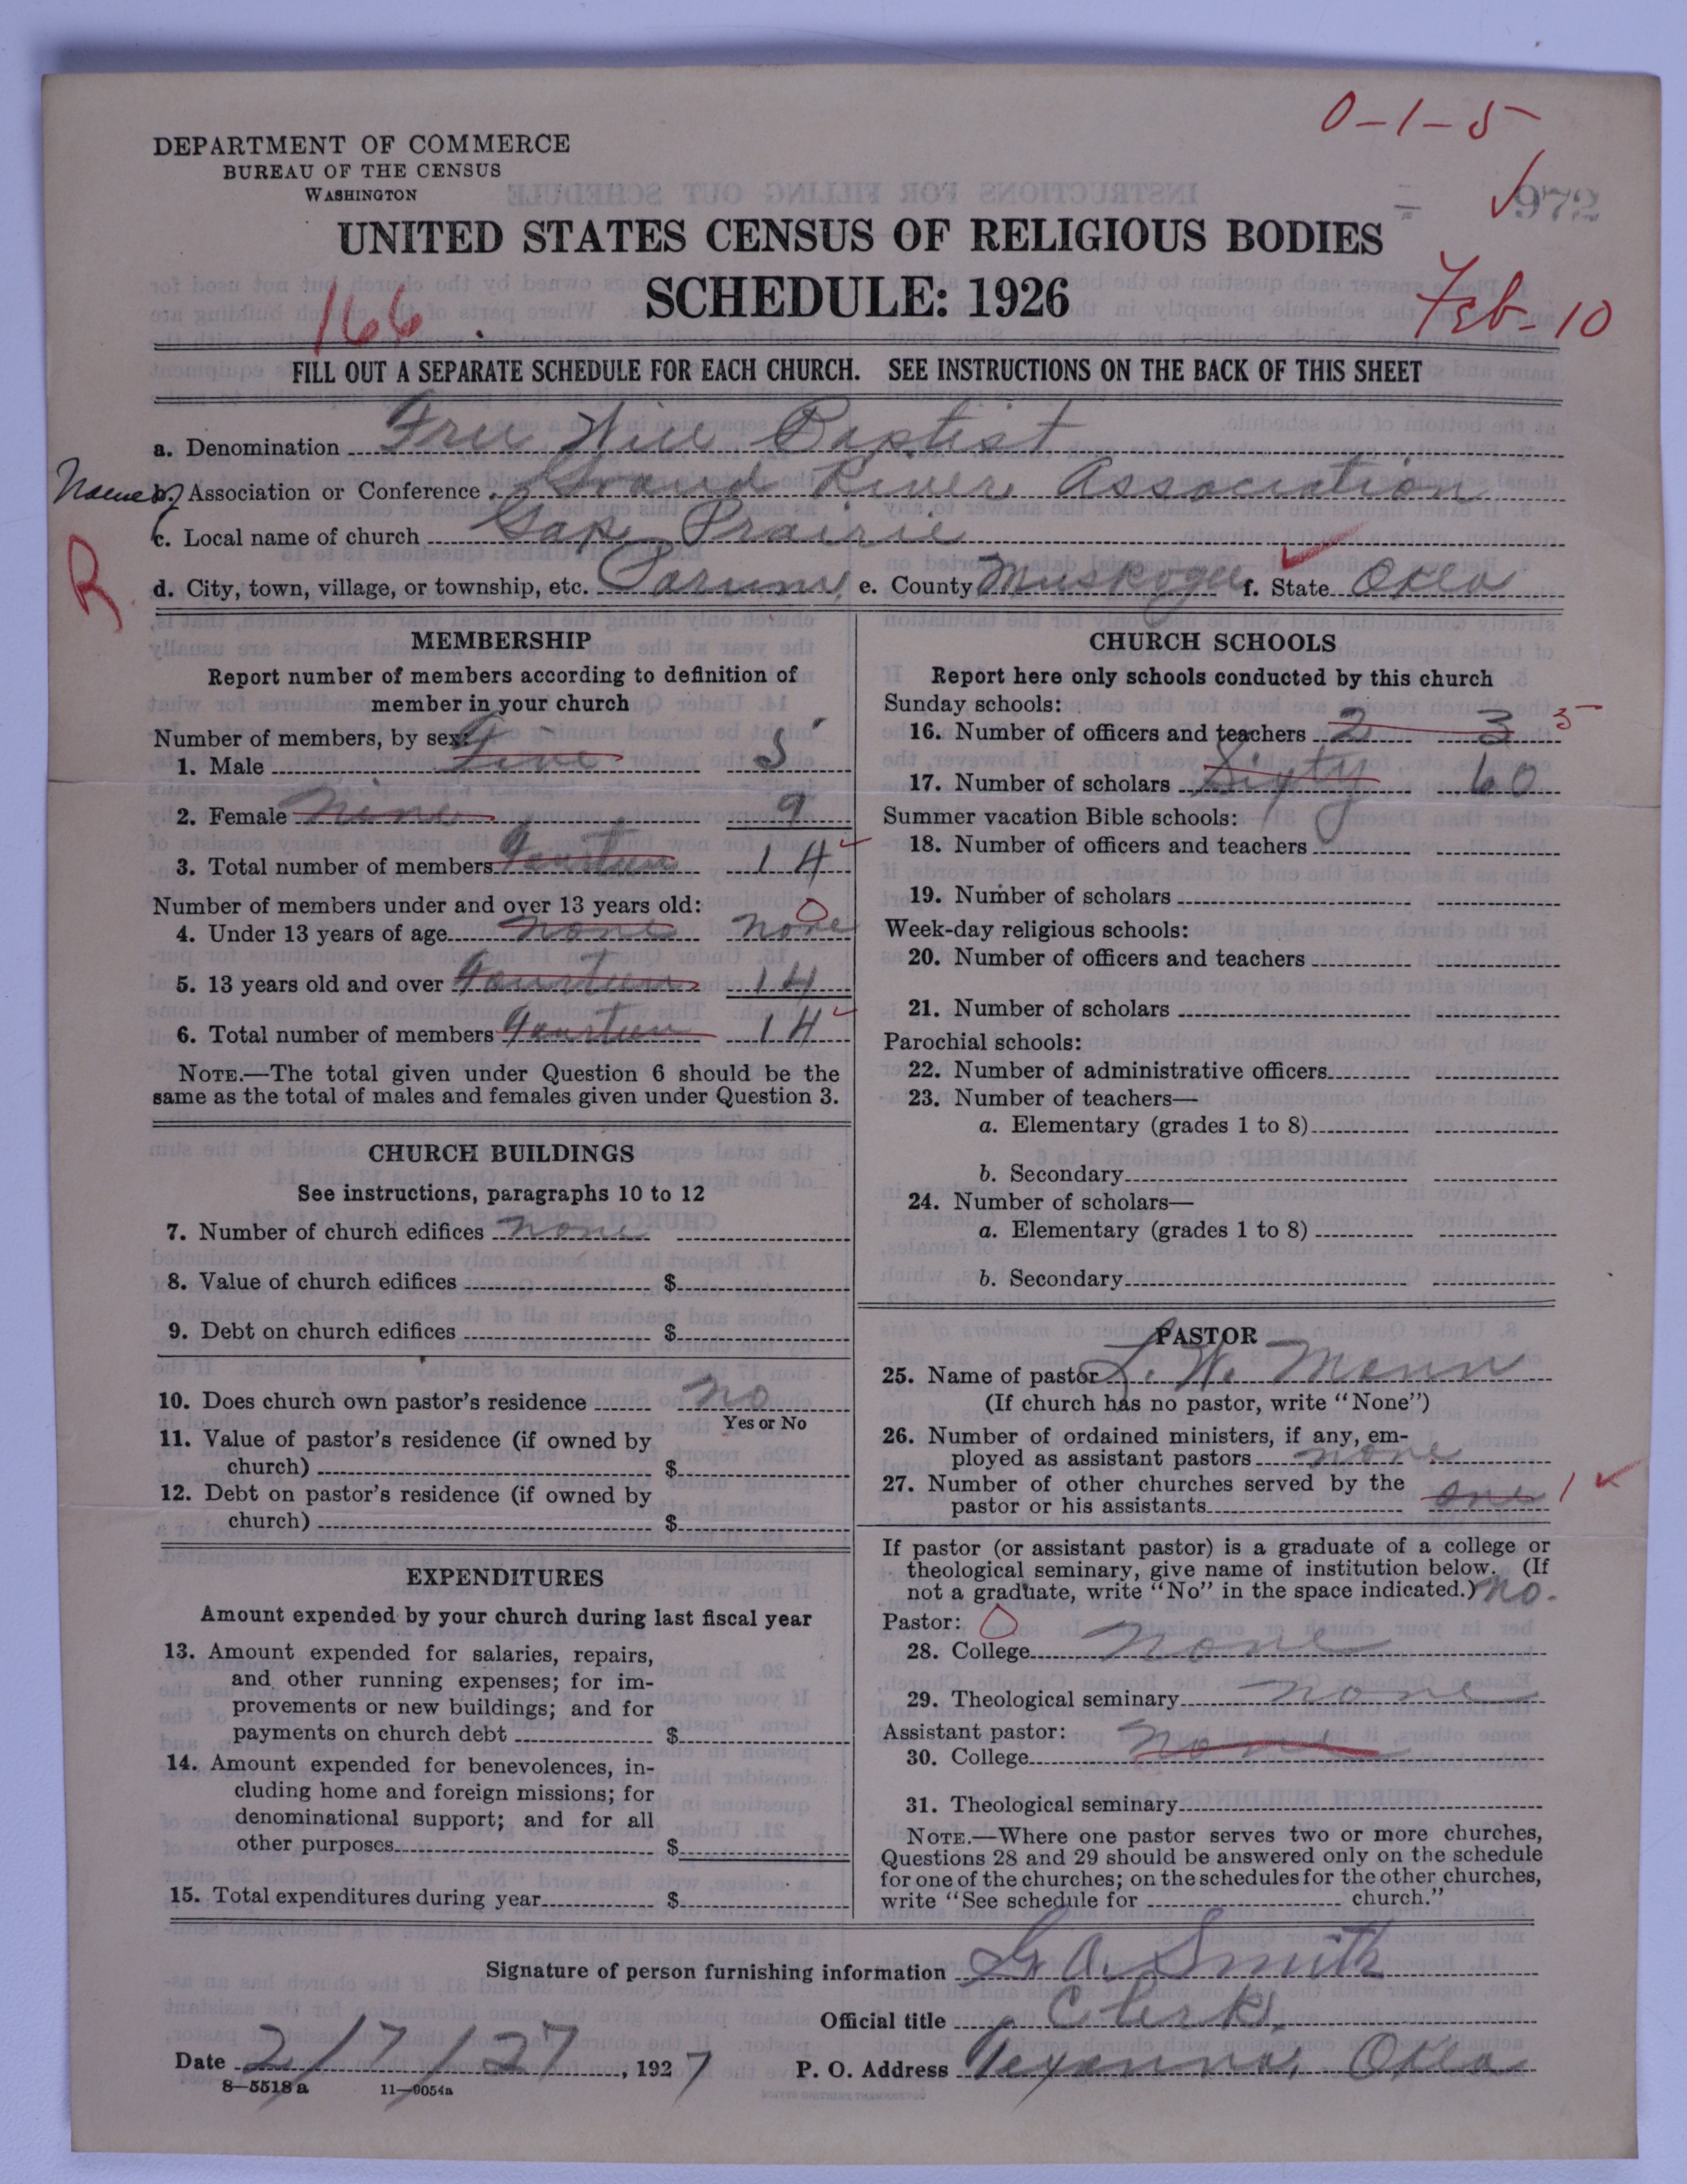 0-1-5
DEPARTMENT OF COMMERCE
BUREAU OF THE CENSUS
WASHINGTON
972
UNITED STATES CENSUS OF RELIGIOUS BODIES
SCHEDULE: 1926
166
Feb-10
FILL OUT A SEPARATE SCHEDULE FOR EACH CHURCH. SEE INSTRUCTIONS ON THE BACK OF THIS SHEET
a. Denomination Free Will Baptist
b. Association or Conference Grand River Association
c. Local name of church Gap Prairie
R
d. City, town, village, or township, etc. Porum, e. County Muskogee f. State Okla
MEMBERSHIP
Report number of members according to definition of
member in your church
Number of members, by sex:
1. Male Five 5
2. Female Nine 9
3. Total number of members Fourteen 14
Number of members under and over 13 years old:
4. Under 13 years of age none none 0
5. 13 years old and over Fourteen 14
6. Total number of members Fourteen 14
NOTE.—The total given under Question 6 should be the
same as the total of males and females given under Question 3.
CHURCH BUILDINGS
See instructions, paragraphs 10 to 12
7. Number of church edifices none
8. Value of church edifices $
9. Debt on church edifices $
10. Does church own pastor's residence no
Yes or No
11. Value of pastor's residence (if owned by
church) $
12. Debt on pastor's residence (if owned by
church) $
EXPENDITURES
Amount expended by your church during last fiscal year
13. Amount expended for salaries, repairs,
and other running expenses; for im-
provements or new buildings; and for
payments on church debt $
14. Amount expended for benevolences, in-
cluding home and foreign missions; for
denominational support; and for all
other purposes $
15. Total expenditures during year $
CHURCH SCHOOLS
Report here only schools conducted by this church
Sunday schools:
16. Number of officers and teachers 2 3 5
17. Number of scholars Sixty 60
Summer vacation Bible schools:
18. Number of officers and teachers
19. Number of scholars
Week-day religious schools:
20. Number of officers and teachers
21. Number of scholars
Parochial schools:
22. Number of administrative officers
23. Number of teachers—
a. Elementary (grades 1 to 8)
b. Secondary
24. Number of scholars—
a. Elementary (grades 1 to 8)
b. Secondary
PASTOR
25. Name of pastor L. W. Mann
(If church has no pastor, write "None")
26. Number of ordained ministers, if any, em-
ployed as assistant pastors none
27. Number of other churches served by the
pastor or his assistants one 1
If pastor (or assistant pastor) is a graduate of a college or
theological seminary, give name of institution below. (If
not a graduate, write "No" in the space indicated.) no.
Pastor: 0
28. College none
29. Theological seminary none
Assistant pastor:
30. College none
31. Theological seminary
NOTE.—Where one pastor serves two or more churches,
Questions 28 and 29 should be answered only on the schedule
for one of the churches; on the schedules for the other churches,
write "See schedule for church."
Signature of person furnishing information G. A. Smith
Official title Clerk.
Date 2/7/27, 1927 P. O. Address Texanna, Okla
8—5518a 11—9054a